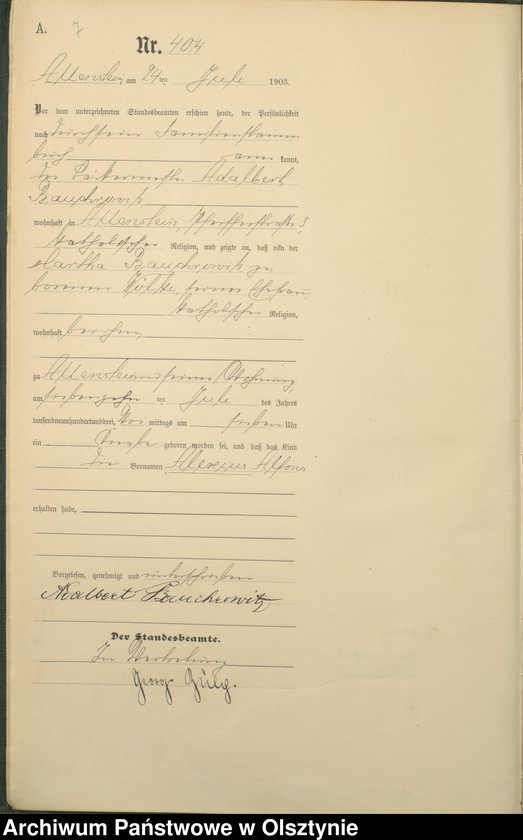 A.
7
Nr. 404
Allenstein, am 24ten Juli 1903.
Vor dem unterzeichneten Standesbeamten erschien heute, der Persönlichkeit
nach durch sein Familienstamm
buch anerkannt,
der Bäckermeister Adalbert
Bauchrowitz,
wohnhaft in Allenstein, Pfeifferstraße 3,
katholischer Religion, und zeigte an, daß von der
Martha Bauchrowitz ge
borenen Wölke, seiner Ehefrau
katholischer Religion,
wohnhaft bei ihm,
zu Allenstein in seiner Wohnung,
am siebenzehnten Juli des Jahres
tausendneunhundertunddrei, Vormittags um sieben Uhr
ein Knabe geboren worden sei, und daß das Kind
die Vornamen Alexius Alfons
erhalten habe,
Vorgelesen, genehmigt und unterschrieben
Adalbert Bauchrowitz
Der Standesbeamte.
In Vertretung
Georg
Archiwum Państwowe w Olsztynie